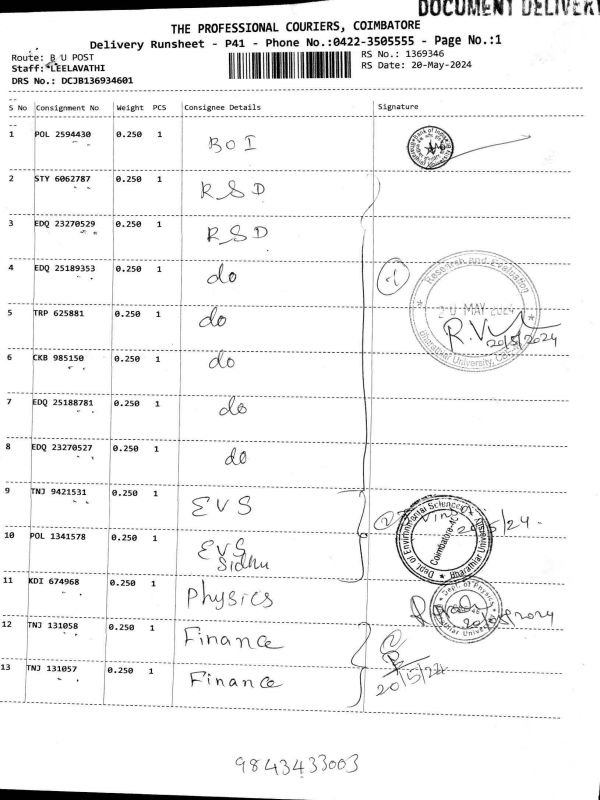 DOCUMENT DELIVERY
THE PROFESSIONAL COURIERS, COIMBATORE
Delivery Runsheet - P41 - Phone No.:0422-3505555 - Page No.:1
Route: B U POST
RS No.: 1369346
Staff: LEELAVATHI
RS Date: 20-May-2024
DRS No.: DCJB136934601
S No Consignment No Weight PCS Consignee Details Signature
1 POL 2594430 0.250 1 BOI
2 STY 6062787 0.250 1 RSD
3 EDQ 23270529 0.250 1 RSD
4 EDQ 25189353 0.250 1 do
Research and Evaluation
5 TRP 625881 0.250 1 do
20 MAY 2024
20/5/2024
Bharathiar University,
6 CKB 985150 0.250 1 do
7 EDQ 25188781 0.250 1 do
8 EDQ 23270527 0.250 1 do
9 TNJ 9421531 0.250 1 EVS
Dept. of Environmental Sciences
Coimbatore-
Bharathiar University
10 POL 1341578 0.250 1 EVS
Sidhu
11 KDI 674968 0.250 1 Physics
Dept. of Physics
12 TNJ 131058 0.250 1 Finance
13 TNJ 131057 0.250 1 Finance
20/5/24
9843433003